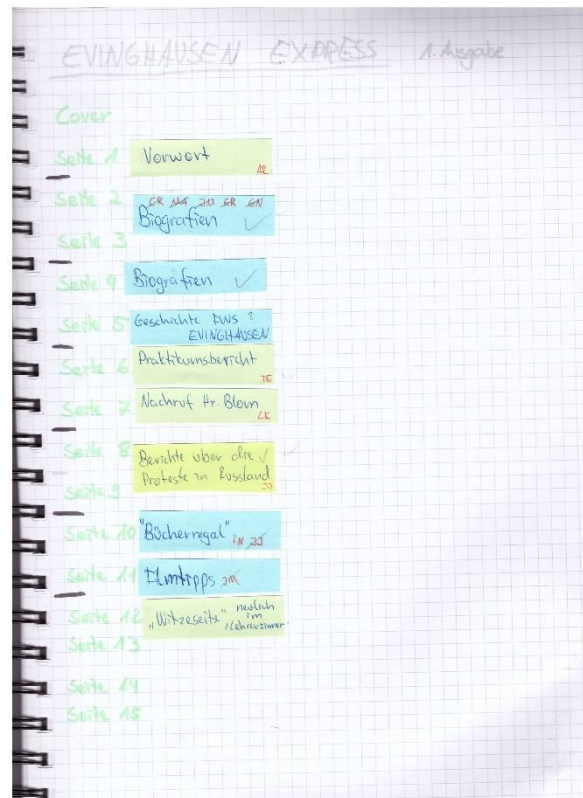 EVINGHAUSEN EXPRESS 1. Ausgabe
Cover
Seite 1 Vorwort
Seite 2 Biografien
Seite 3
Seite 4 Biografien
Seite 5 Geschichte FWS ?
EVINGHAUSEN
Seite 6 Praktikumsbericht
TE
Seite 7 Nachruf Hr. Blom
LK
Seite 8 Berichte über die
Proteste in Russland
Seite 9 JJ
Seite 10 "Bücherregal"
Seite 11 Filmtipps JM
Seite 12 „Witzeseite" neulich
im
Lehrerzimmer
Seite 13
Seite 14
Seite 15